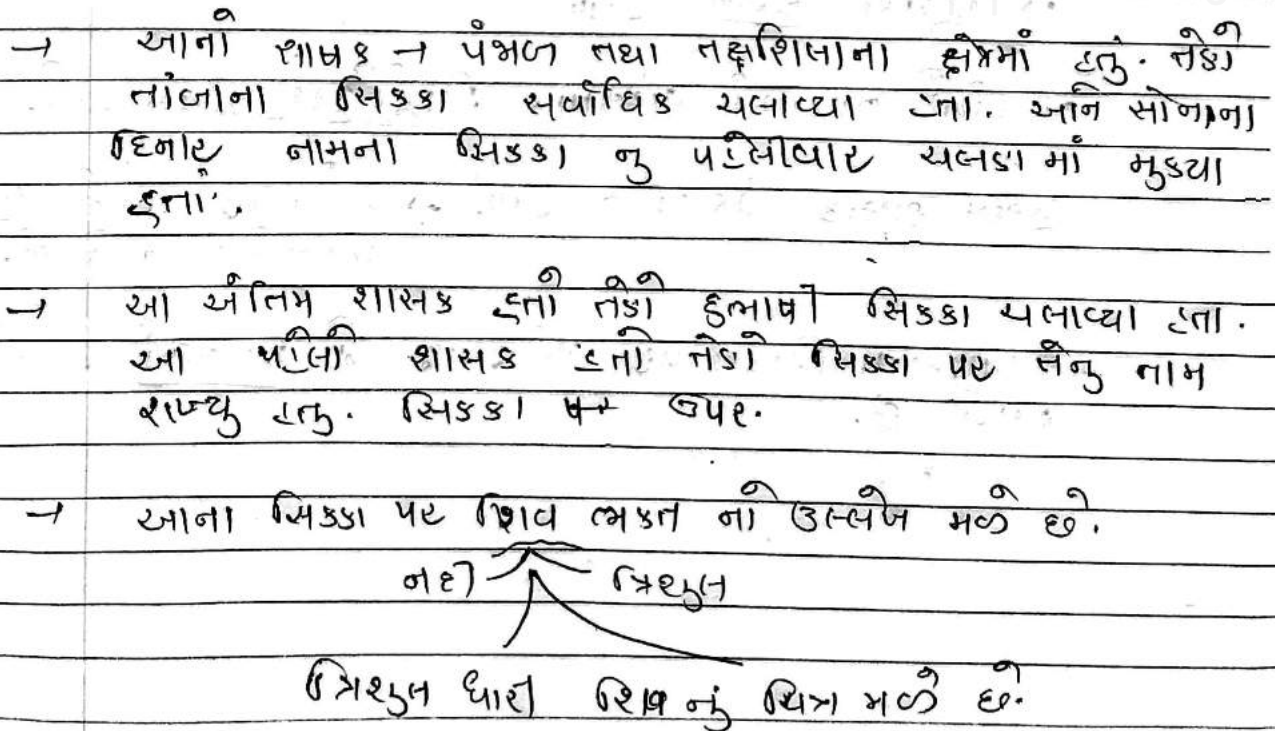 → આનો શાષક → પંજાબ તથા તક્ષશિલાના ક્ષેત્રમાં હતું. તેણે
તાંબાના સિકકા સર્વાધિક ચલાવ્યા હતા. અને સોનાના
દિનાર નામના સિકકા નુ પહેલીવાર ચલણ માં મુકયા
હતા.
→ આ અંતિમ શાસક હતો તેણે દુભાષી સિકકા ચલાવ્યા હતા.
આ પહેલો શાસક હતો તેણે સિકકા પર તેનુ નામ
રાખ્યુ હતુ. સિકકા ઉપર.
→ આના સિકકા પર શિવ ભકત નો ઉલ્લેખ મળે છે.
નદી ત્રિશુલ
ત્રિશુલ ધારી શિવ નું ચિત્ર મળે છે.